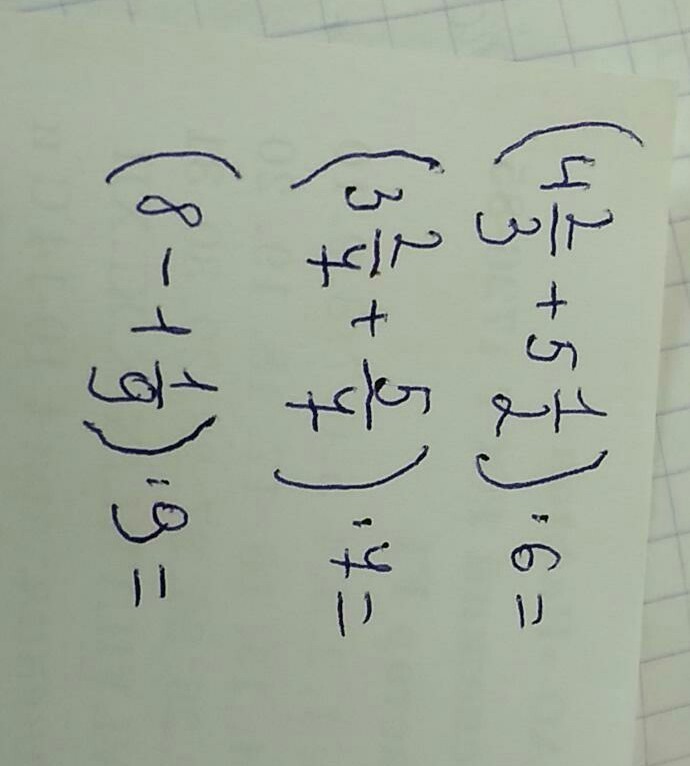 (4 2/3 + 5 1/2) : 6 =
(3 2/7 + 5/7) : 7 =
(8 - 1 1/9) : 9 =